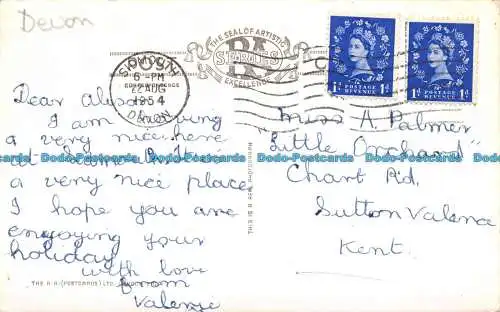 Devon
THE SEAL OF ARTISTIC
RA
SERIES
EXCELLENCE
6 - PM
22 AUG
1954
DEVON
1D POSTAGE REVENUE 1D
1D POSTAGE REVENUE 1D
Dear Alison
I am having
a very nice here
a very nice place
I hope you are
enjoying your
holiday
with love
from
Valerie
THIS IS A REAL PHOTOGRAPH
Miss A. Palmer
"Little Orchard"
Chart Rd,
Sutton Valence
Kent.
THE R.A. (POSTCARDS) LTD. LONDON
Dodo-Postcards Dodo-Postcards Dodo-Postcards Dodo-Postcards
Dodo-Postcards Dodo-Postcards Dodo-Postcards Dodo-Postcards